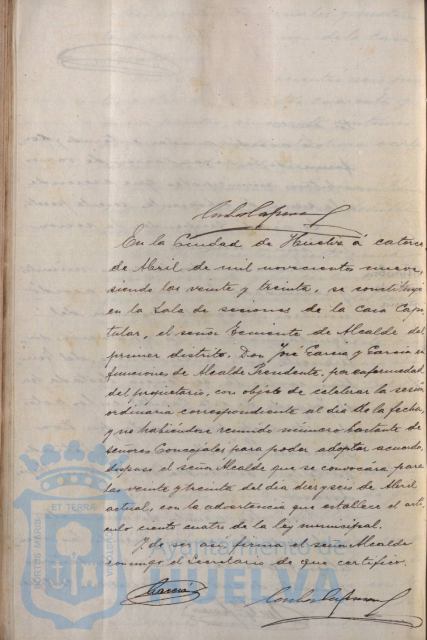 En la Ciudad de Huelva á catorce
de Abril de mil novecientos nueve,
siendo las veinte y treinta, se constituyó
en la Sala de sesiones de la Casa Capi-
tular, el señor Teniente de Alcalde del
primer distrito, Don José García y García en
funciones de Alcalde Presidente, por enfermedad
del propietario, con objeto de celebrar la sesión
ordinaria correspondiente al día de la fecha,
y no habiéndose reunido número bastante de
señores Concejales para poder adoptar acuerdo,
dispuso el señor Alcalde que se convocára para
las veinte y treinta del día diez y seis de Abril
actual, con la advertencia que establece el artí-
culo ciento cuatro de la ley municipal.
Y de ser así firma el señor Alcalde
conmigo el Secretario de que certifico.
García
ET TERRA
PORTUS MARIS
CUSTODIA
Ayuntamiento de
HUELVA